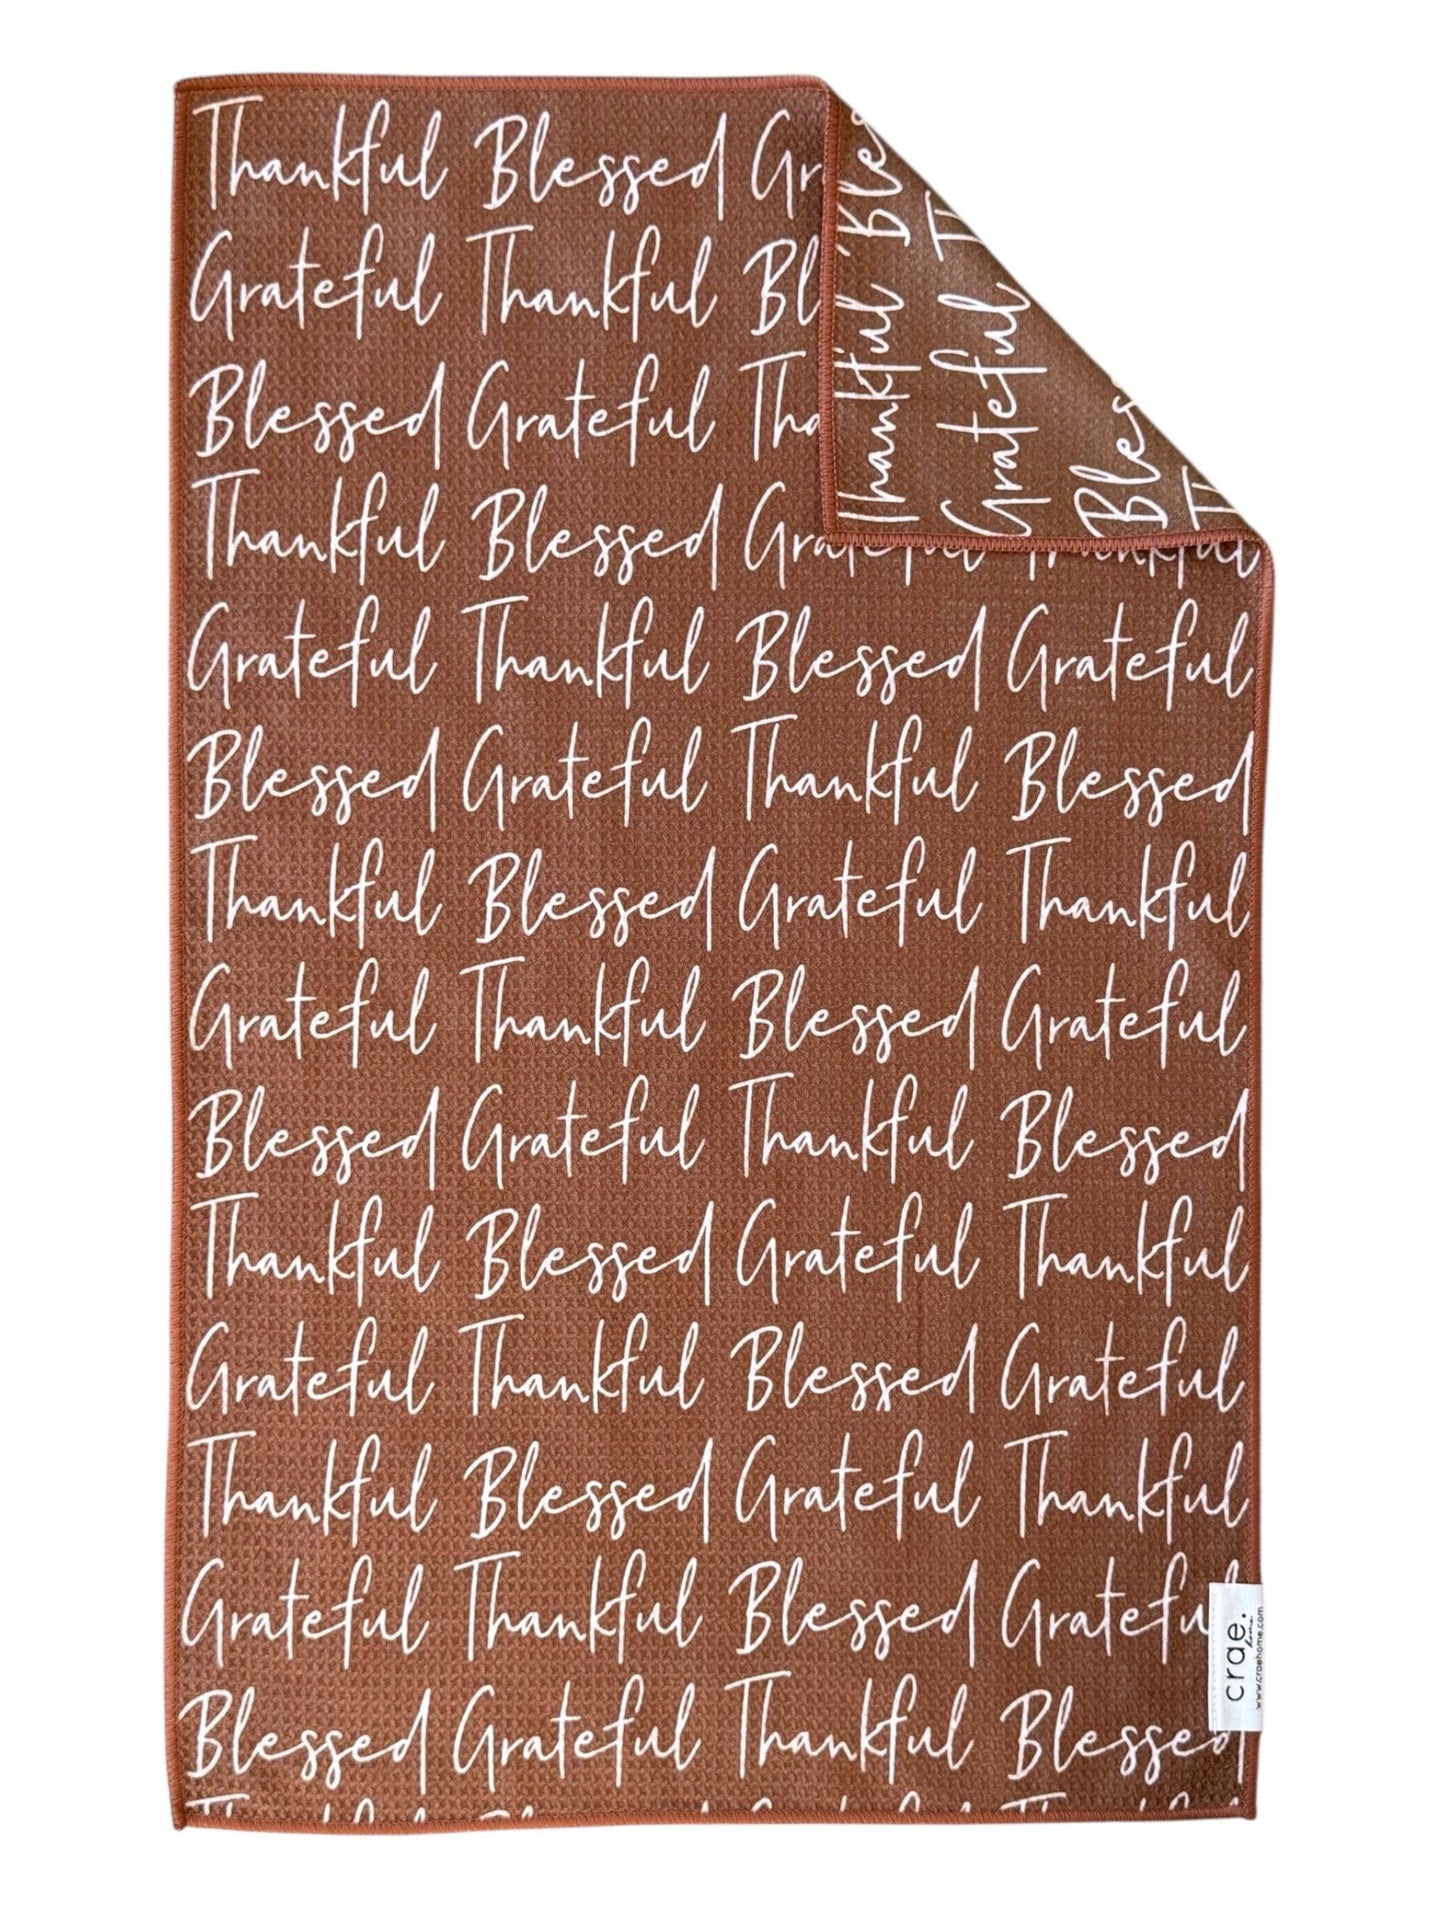 Thankful Blessed Gr
Grateful Thankful Bl
Blessed Grateful Tha
Thankful Blessed Grateful Thankful
Grateful Thankful Blessed Grateful
Blessed Grateful Thankful Blessed
Thankful Blessed Grateful Thankful
Grateful Thankful Blessed Grateful
Blessed Grateful Thankful Blessed
Thankful Blessed Grateful Thankful
Grateful Thankful Blessed Grateful
Thankful Blessed Grateful Thankful
Grateful Thankful Blessed Grateful
Blessed Grateful Thankful Blessed
Thankful Bles
Grateful T
Bles
Th
crae.
home
www.craehome.com